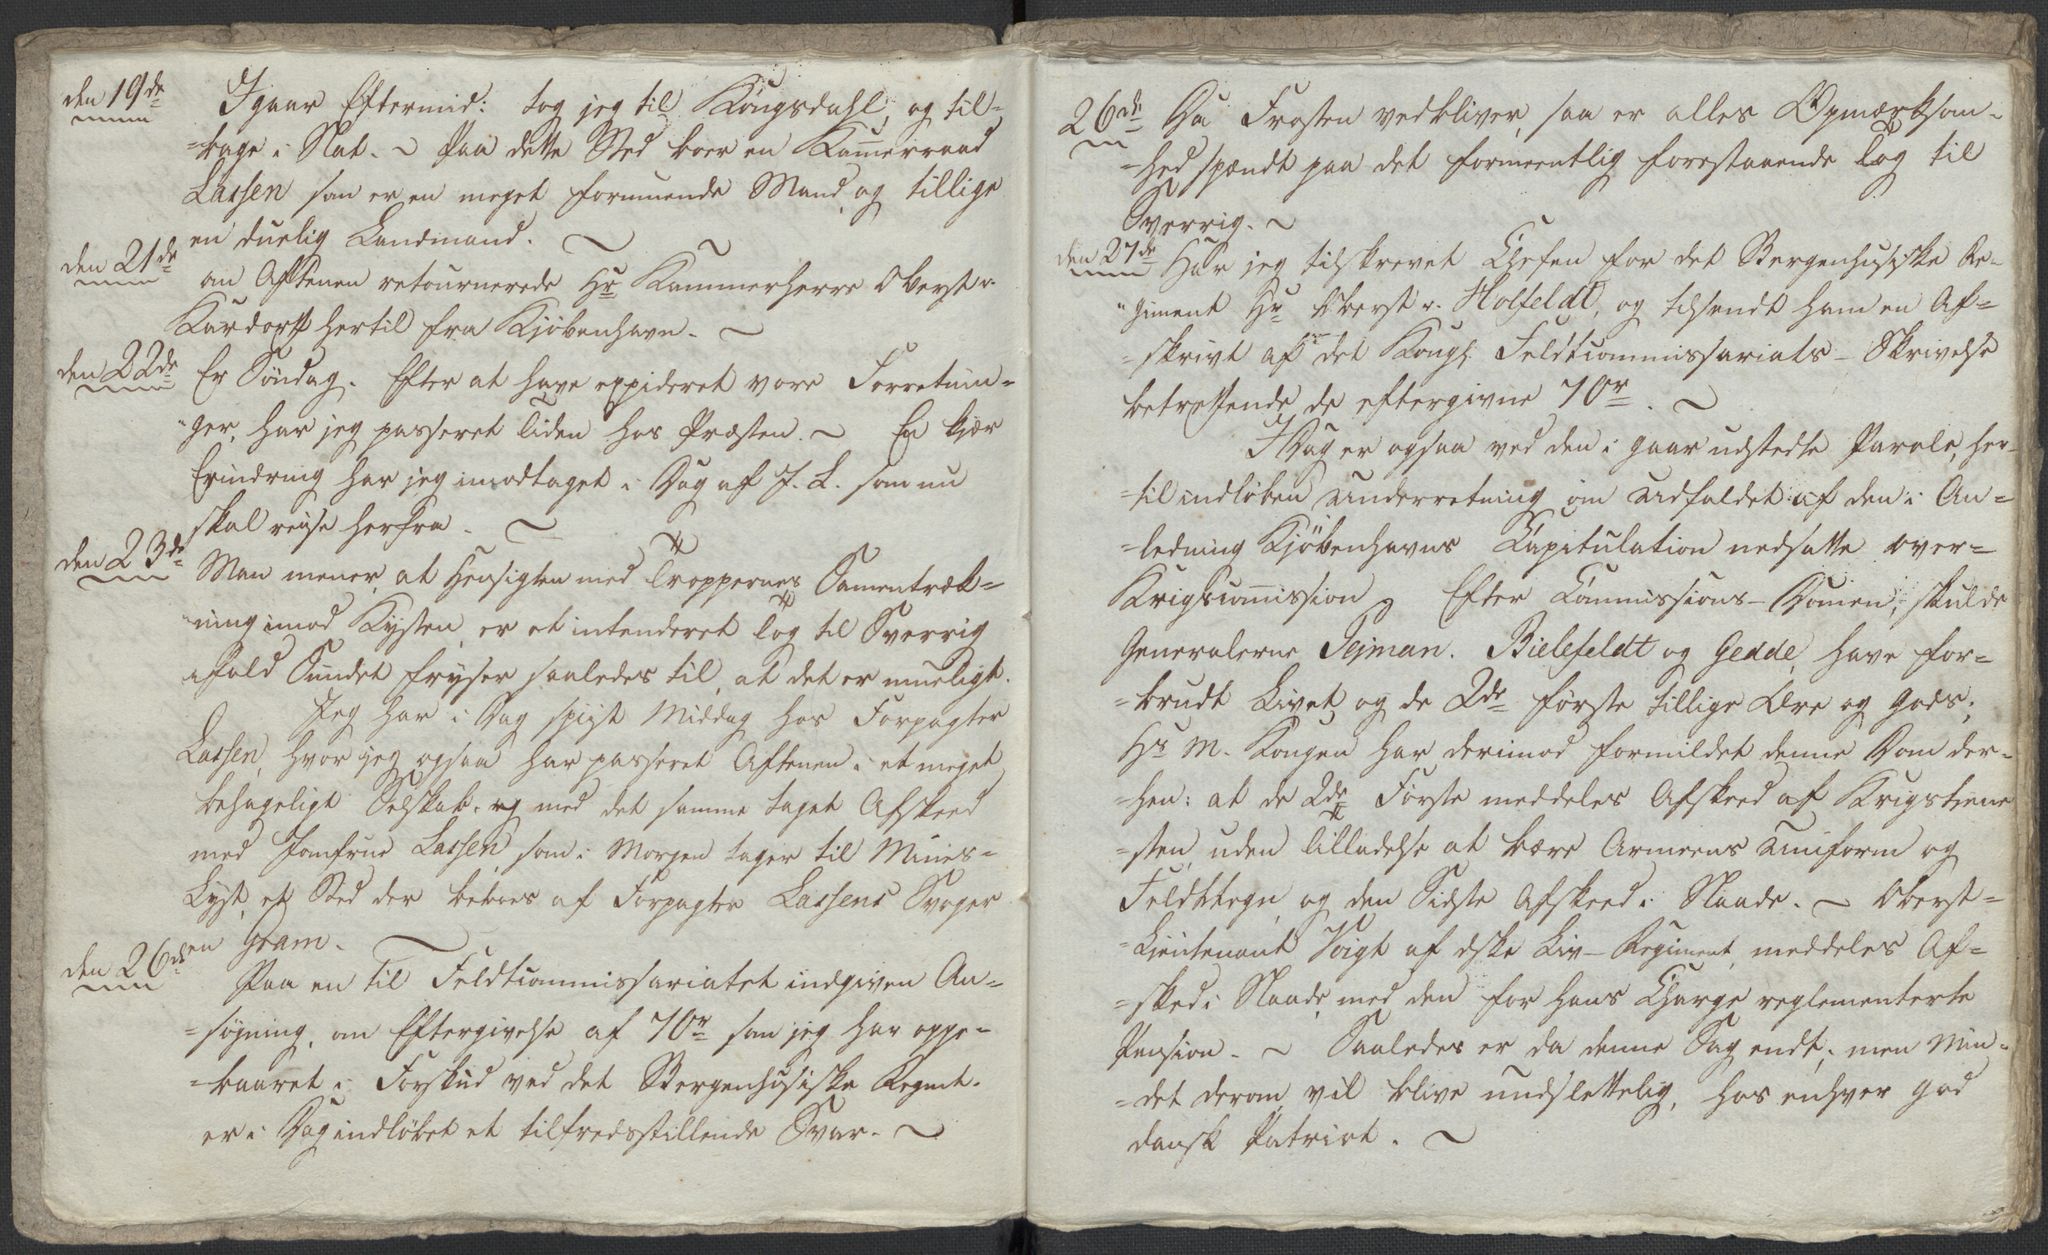 den 19de Igaar Eftermid: tog jeg til Kongsdahl, og til-
=bage i Nat. ~ Paa dette Sted boer en Kammerraad
Lassen som er en meget formuende Mand, og tillige
en duelig Landmand. ~
den 21de om Aftenen retournerede Hr Kammerherre Oberst v.
Kardorff hertil fra Kjöbenhavn. ~
den 22de Er Söndag. Efter at have expideret vore Forretnin=
"ger, har jeg passeret Tiden hos Præsten. ~ En kjær
Erindring har jeg imodtaget i Dag af J. L. som nu
skal reise herfra. ~
den 23de Man mener, at Hensigten med Troppernes Samentræk=
"ning imod Kysten, er et intenderet Tog til Sverrig
ifald Sundet fryser saaledes til, at det er mueligt.
Jeg har i Dag spiist Middag hos Forpagter
Lassen, hvor jeg ogsaa har passeret Aftenen i et meget
behageligt Selskab. og med det samme taget Afskeed
med Jomfrue Lassen som i Morgen tager til Mines=
Lyst, et Sted der beboes af Forpagter Lassens Svoger
en Gram. ~
den 26de Paa en til Feldtcommissariatet indgiven An=
=søgning, om Eftergivelse af 70r som jeg har oppe=
=baaret i Forskud ved det Bergenhusiske Regmt.
er i Dag indlöbet et tilfredsstillende Svar. ~
26de Da Frosten vedbliver, saa er alles Opmærksom-
=hed spændt paa det formeentlig forestaaende Tog til
Sverrig. ~
den 27de Har jeg tilskrevet Chefen for det Bergenhusiske Re-
"giment Hr Oberst v. Holfeldt, og tilsendt ham en Af=
=skrivt af det Kongl. Feldtcommissariats- Skrivelse
betreffende de eftergivne 70r. ~
I Dag er ogsaa ved den i gaar udstedte Parole, her-
=til indløben Underretning om Udfaldet af den i An=
=ledning Kjöbenhavns Capitulation nedsatte Over=
Krigscommission. Efter Commissions-Domen, skulde
Generalerne Pejman. Bielefeldt og Gedde, have for=
=brudt Livet og de 2de første tillige Ære og Gods;
Hs M. Kongen har derimod formildet denne Dom der-
=hen: at de 2de Første meddeles Afskeed af Krigstiene
=sten, uden Tilladelse at bære Armeens Uniform og
Feldttegn, og den Sidste Afskeed i Naade. ~ Oberst=
=Lieutenant Voigt af dske Liv-Regiment, meddeles Af=
=sked i Naade, med den for hans Charge reglementerte
Pension. ~ Saaledes er da denne Sag endt; men Min=
=det derom, vil blive uudslettelig, hos enhver god
dansk Patriot. ~